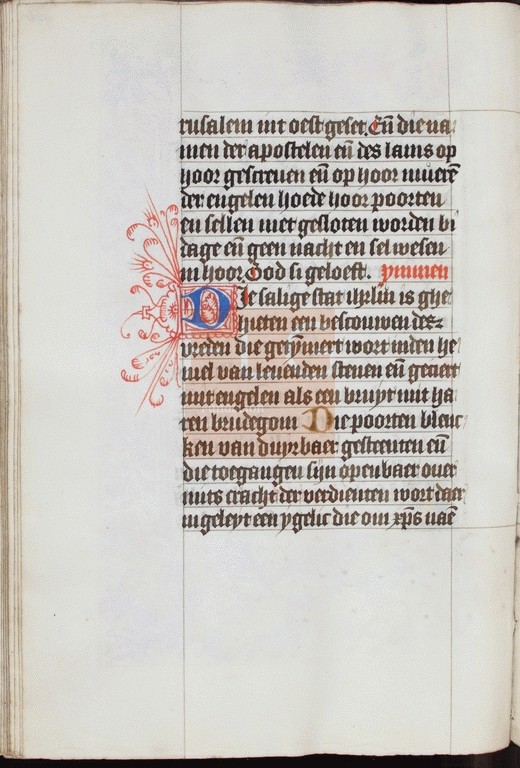 rusalem uut oest geset. Eñ die na
men der apostelen eñ des lams op
hoor gescreuen eñ op hoor muerē
der engelen hoede hoor poorten
en sellen niet gesloten worden bi
dage eñ geen nacht en sel wesen
in hoor. God si geloeft. ymmen
Die salige stat ihrlm is ghe
hieten een bescouwen des
vreden die getymert wort inden he
mel van leuenden stenen eñ geciert
mit engelen als een bruyt mit ha
ren brudegom Die poorten blenc
ken van duyrbaer gesteenten eñ
die toegangen sijn openbaer ouer
mits cracht der verdienten wort daer
in geleyt een ygelic die om xp̄s naē